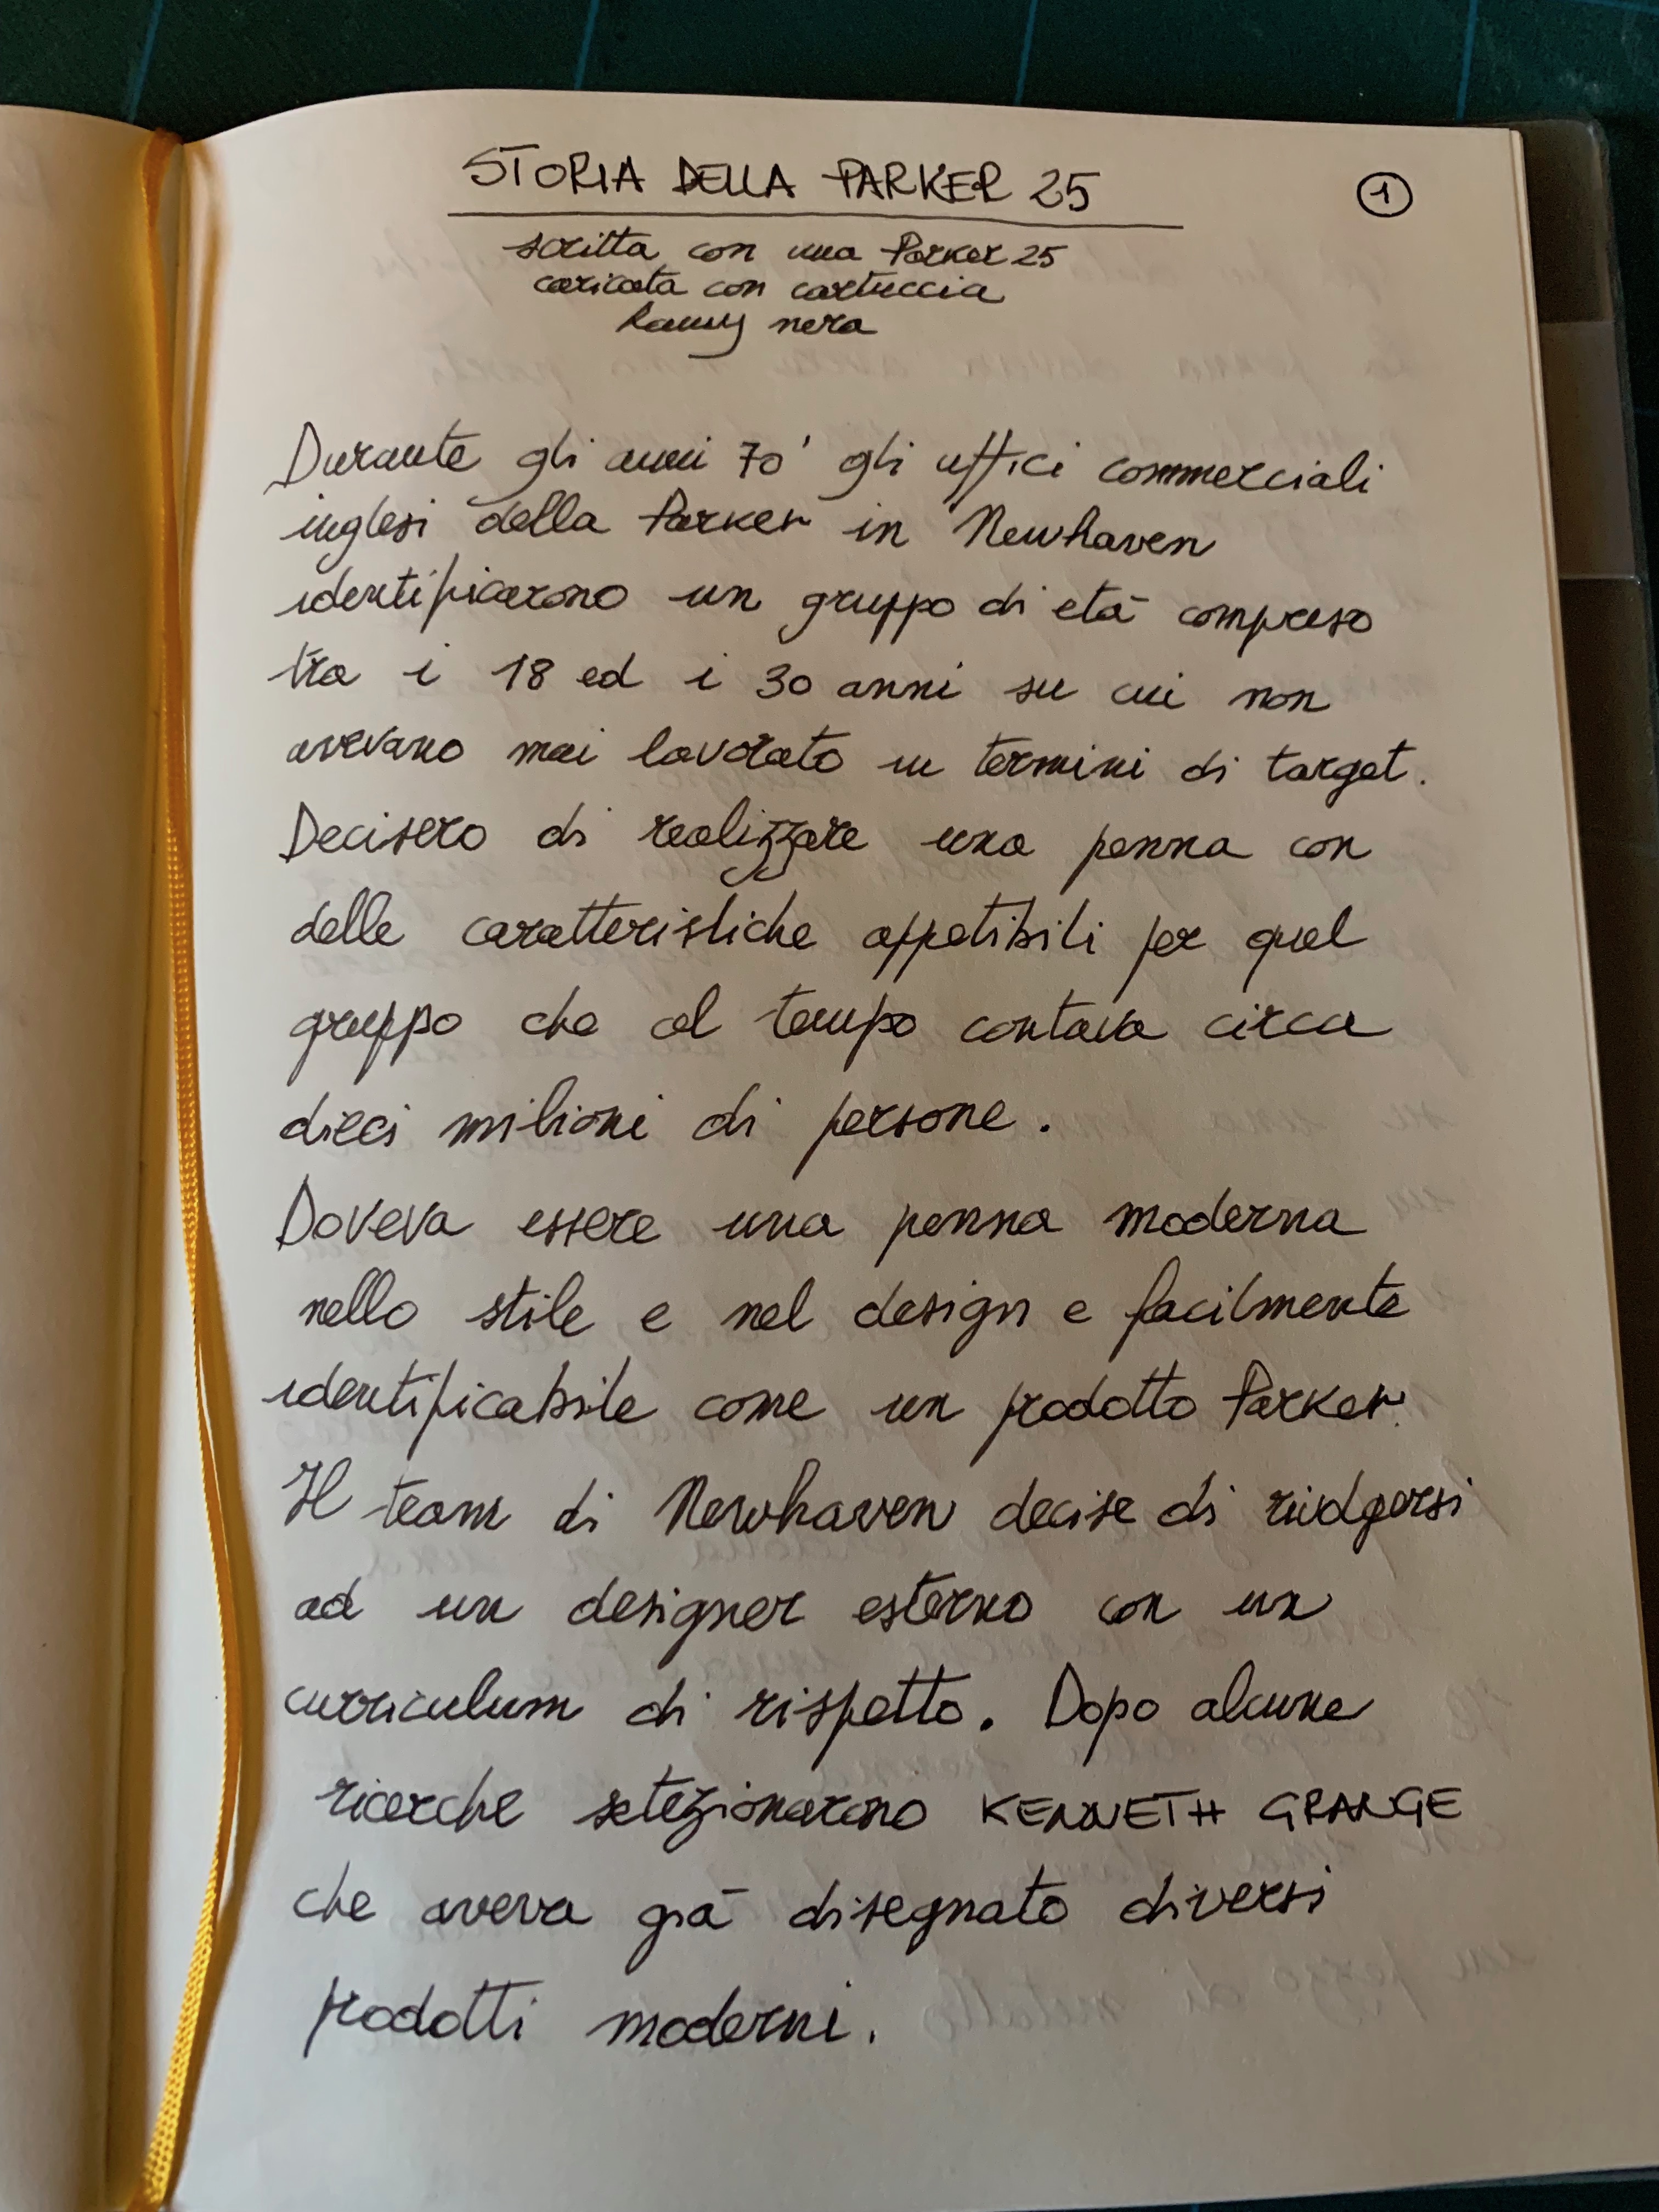 STORIA DELLA PARKER 25
1
scritta con una Parker 25
caricata con cartuccia
Lamy nera
Durante gli anni 70' gli uffici commerciali
inglesi della Parker in Newhaven
identificarono un gruppo di età compreso
tra i 18 ed i 30 anni su cui non
avevano mai lavorato in termini di target.
Decisero di realizzare una penna con
delle caratteristiche appetibili per quel
gruppo che al tempo contava circa
dieci milioni di persone.
Doveva essere una penna moderna
nello stile e nel design e facilmente
identificabile come un prodotto Parker.
Il team di Newhaven decise di rivolgersi
ad un designer esterno con un
curriculum di rispetto. Dopo alcune
ricerche selezionarono KENNETH GRANGE
che aveva già disegnato diversi
prodotti moderni.